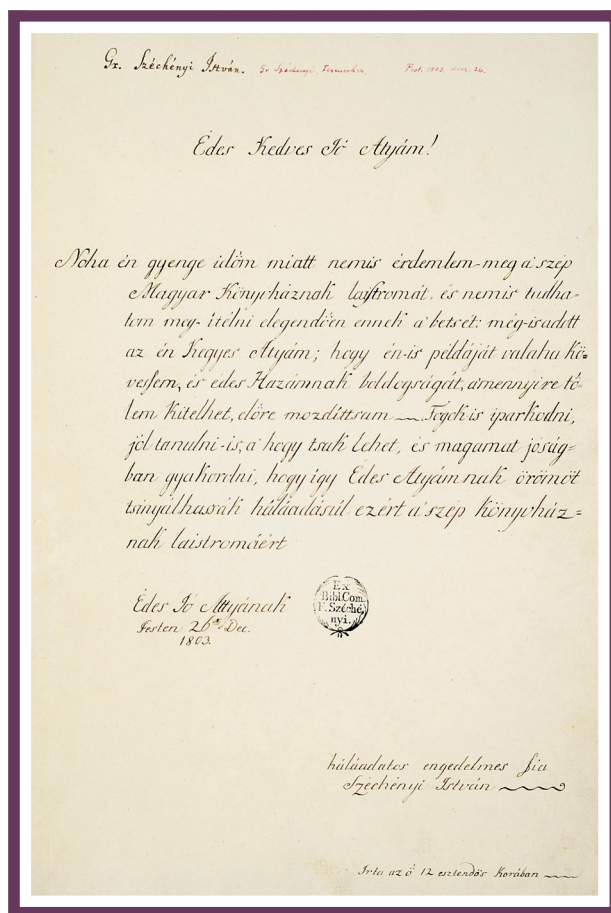 Gr. Széchényi István. Gr Széchenyi Ferencz Prot. 1803. 26.
Édes Kedves Jó Atyám!
Noha én gyenge időm miatt nemis érdemlem-meg a' szép
Magyar Könyvháznak laistromát, és nemis tudha-
tom meg-ítélni elegendően ennek a' betsét: még-is adott
az én Kegyes Atyám; hogy én-is példáját valaha kö=
vessem, és édes Hazámnak boldogságát, amennyire tő-
lem kitelhet, előre mozdíttsam — Fogok is iparkodni,
jól tanulni-is, a' hogy tsak lehet, és magamat jóság=
ban gyakorolni, hogy így Édes Atyámnak örömöt
tsinyálhassák háláadásúl ezért a' szép könyvház=
nak laistromáért
Édes Jó Attyának
Pesten 26 Dec.
1803.
Ex
Bibl. Com.
F. Széché,
nyi.
háláadatos engedelmes fia
Széchényi István
Irta az ő 12 esztendős Korában